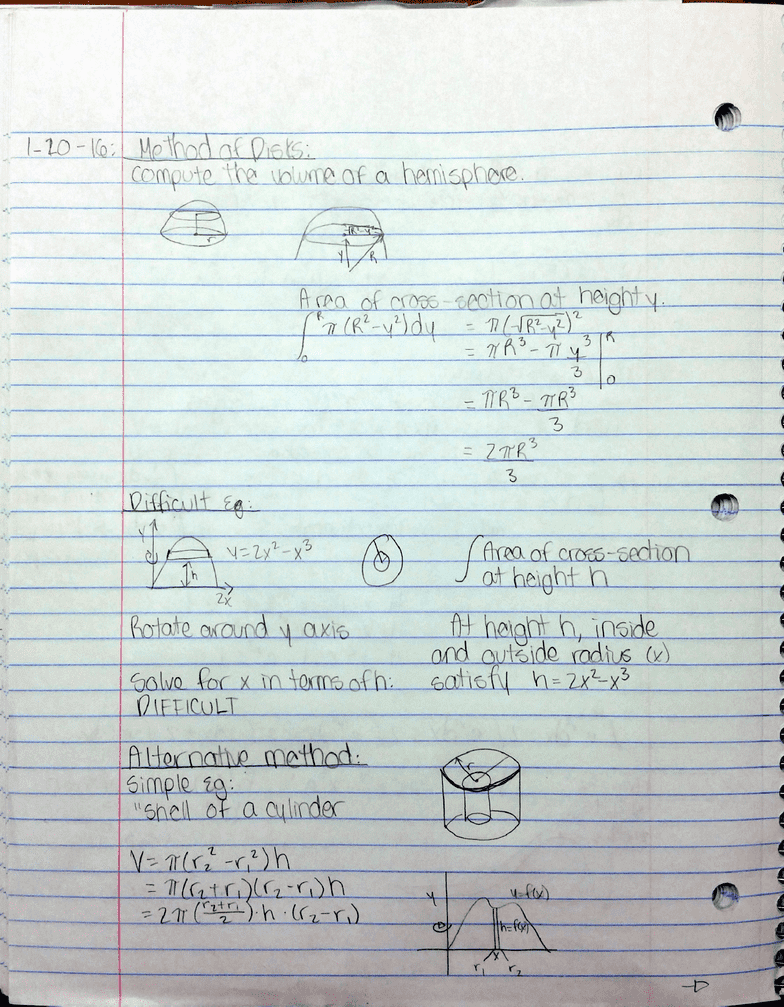 1-20-16: Method of Disks:
compute the volume of a hemisphere.
r
√R²-y²
y R
Area of cross-section at height y.
∫₀ᴿ π(R²-y²)dy = π(√R²-y²)²
= πR³ - π y³/3 |₀ᴿ
= πR³ - πR³/3
= 2πR³/3
Difficult Eg:
y
y=2x²-x³
h
2x
∫ Area of cross-section
at height h
Rotate around y axis
At height h, inside
and outside radius (x)
satisfy h=2x²-x³
Solve for x in terms of h:
DIFFICULT
Alternative method:
Simple Eg:
"shell of a cylinder
r
V=π(r₂²-r₁²)h
=π(r₂+r₁)(r₂-r₁)h
=2π(r₂+r₁/2)·h·(r₂-r₁)
y
y=f(x)
h=f(x)
r₁ x r₂